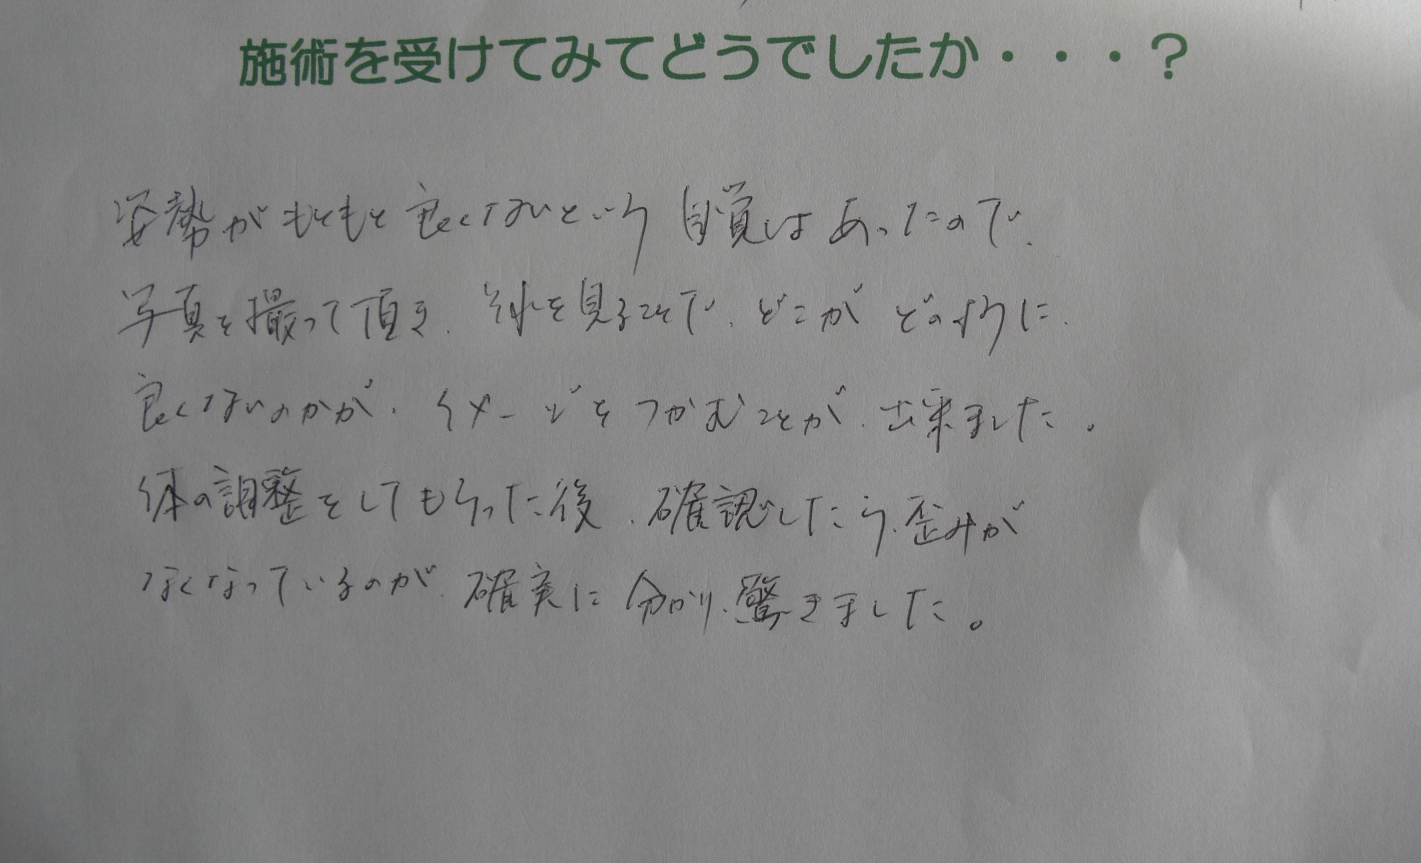 施術を受けてみてどうでしたか・・・？
姿勢がもともと良くないという自覚はあったので、
写真を撮って頂き、それを見ることで、どこがどのように、
良くないのかが、イメージをつかむことが、出来ました。
体の調整をしてもらった後、確認したら、歪みが
なくなっているのが、確実に分かり、驚きました。